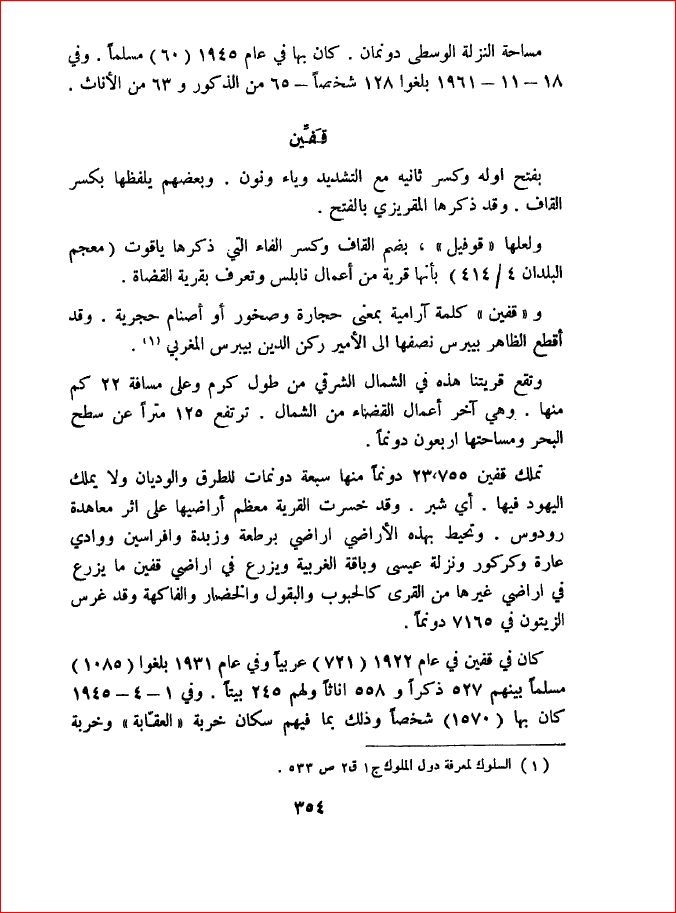 مساحة النزلة الوسطى دونمان . كان بها في عام ١٩٤٥ (٦٠) مسلماً . وفي
١٨ – ١١ – ١٩٦١ بلغوا ١٢٨ شخصاً – ٦٥ من الذكور و ٦٣ من الأناث .
قفِّين
بفتح اوله وكسر ثانيه مع التشديد وياء ونون . وبعضهم يلفظها بكسر
القاف . وقد ذكرها المقريزي بالفتح .
ولعلها «قوفيل» ، بضم القاف وكسر الفاء التي ذكرها ياقوت (معجم
البلدان ٤ / ٤١٤) بأنها قرية من أعمال نابلس وتعرف بقرية القضاة .
و «قفين» كلمة آرامية بمعنى حجارة وصخور أو أصنام حجرية . وقد
أقطع الظاهر بيبرس نصفها الى الأمير ركن الدين بيبرس المغربي (١) .
وتقع قريتنا هذه في الشمال الشرقي من طول كرم وعلى مسافة ٢٢ كم
منها . وهي آخر أعمال القضاء من الشمال . ترتفع ١٢٥ متراً عن سطح
البحر ومساحتها اربعون دونماً .
تملك قفين ٢٣،٧٥٥ دونماً منها سبعة دونمات للطرق والوديان ولا يملك
اليهود فيها . أي شبر . وقد خسرت القرية معظم أراضيها على اثر معاهدة
رودوس . وتحيط بهذه الأراضي اراضي برطعة وزبدة وافراسين ووادي
عارة وكركور ونزلة عيسى وباقة الغربية ويزرع في اراضي قفين ما يزرع
في اراضي غيرها من القرى كالحبوب والبقول والخضار والفاكهة وقد غرس
الزيتون في ٧١٦٥ دونماً .
كان في قفين في عام ١٩٢٢ (٧٢١) عربياً وفي عام ١٩٣١ بلغوا (١٠٨٥)
مسلماً بينهم ٥٢٧ ذكراً و ٥٥٨ اناثاً ولهم ٢٤٥ بيتاً . وفي ١ – ٤ – ١٩٤٥
كان بها (١٥٧٠) شخصاً وذلك بما فيهم سكان خربة «العقّابة» وخربة
(١) السلوك لمعرفة دول الملوك ج١ ق٢ ص ٥٣٣ .
٣٥٤